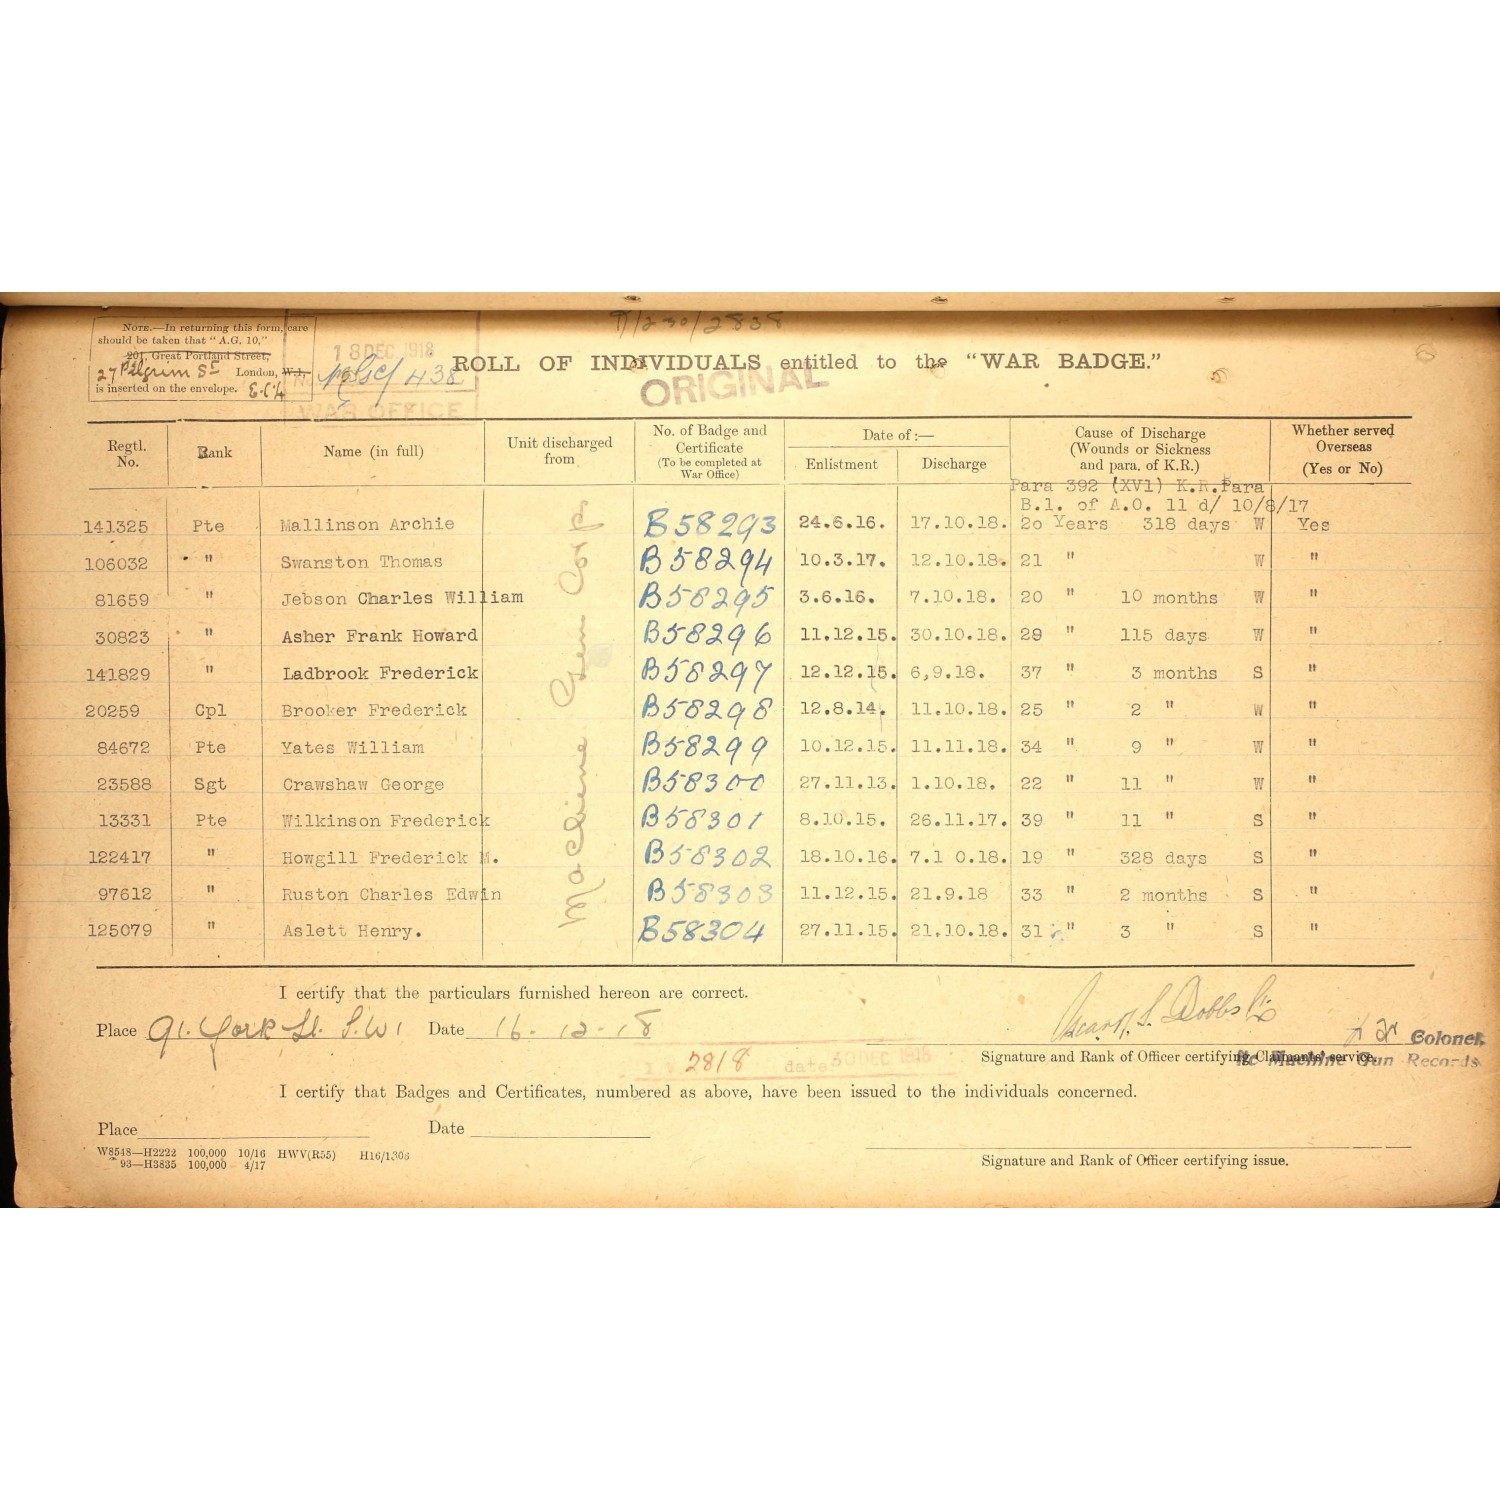 T/230/2838
NOTE.—In returning this form, care
should be taken that "A.G. 10,"
201, Great Portland Street,
27 Pilgrim St London, W.1.,
is inserted on the envelope. E.C.4
18 DEC 1918
438
WAR OFFICE
ROLL OF INDIVIDUALS entitled to the "WAR BADGE."
ORIGINAL
Regtl. No. Rank Name (in full) Unit discharged from No. of Badge and Certificate (To be completed at War Office) Date of :— Enlistment Discharge Cause of Discharge (Wounds or Sickness and para. of K.R.) Whether served Overseas (Yes or No)
Para 392 (XV1) K.R.Para
B.1. of A.O. 11 d/ 10/8/17
Machine Gun Corps
141325 Pte Mallinson Archie B58293 24.6.16. 17.10.18. 20 Years 318 days W Yes
106032 " Swanston Thomas B58294 10.3.17. 12.10.18. 21 " W "
81659 " Jebson Charles William B58295 3.6.16. 7.10.18. 20 " 10 months W "
30823 " Asher Frank Howard B58296 11.12.15. 30.10.18. 29 " 115 days W "
141829 " Ladbrook Frederick B58297 12.12.15. 6,9.18. 37 " 3 months S "
20259 Cpl Brooker Frederick B58298 12.8.14. 11.10.18. 25 " 2 " W "
84672 Pte Yates William B58299 10.12.15. 11.11.18. 34 " 9 " W "
23588 Sgt Crawshaw George B58300 27.11.13. 1.10.18. 22 " 11 " W "
13331 Pte Wilkinson Frederick B58301 8.10.15. 26.11.17. 39 " 11 " S "
122417 " Howgill Frederick M. B58302 18.10.16. 7.1 0.18. 19 " 328 days S "
97612 " Ruston Charles Edwin B58303 11.12.15. 21.9.18 33 " 2 months S "
125079 " Aslett Henry. B58304 27.11.15. 21.10.18. 31 " 3 " S "
I certify that the particulars furnished hereon are correct.
Place 91. York St. S.W1 Date 16-12-18
Dobbs
Colonel
Signature and Rank of Officer certifying Claimants' service.
i/c Machine Gun Records
2818 date 30 DEC 1918
I certify that Badges and Certificates, numbered as above, have been issued to the individuals concerned.
Place Date
W8548—H2222 100,000 10/16 HWV(R55) H16/1306
93—H3835 100,000 4/17
Signature and Rank of Officer certifying issue.